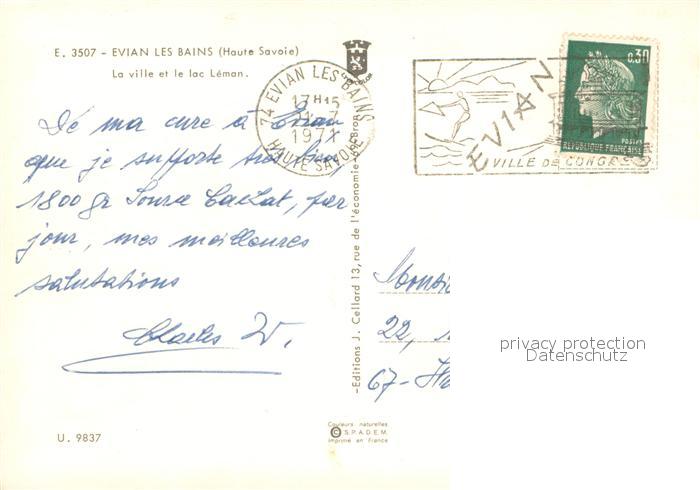 E. 3507 - EVIAN LES BAINS (Haute Savoie)
La ville et le lac Léman.
74 EVIAN LES BAINS
17H15
1971
HAUTE SAVOIE
EVIAN
VILLE DE CONGRES
0,30
POSTES
REPUBLIQUE FRANÇAISE
De ma cure à Evian
que je supporte très bien,
1800 gr Source Cachat, par
jour, mes meilleures
salutations
Charles W.
-Editions J. Cellard 13, rue de l'économie -69-Bron-
Monsi
22,
67-
privacy protection
Datenschutz
U. 9837
Couleurs naturelles
© S.P.A.D.E.M.
imprimé en France